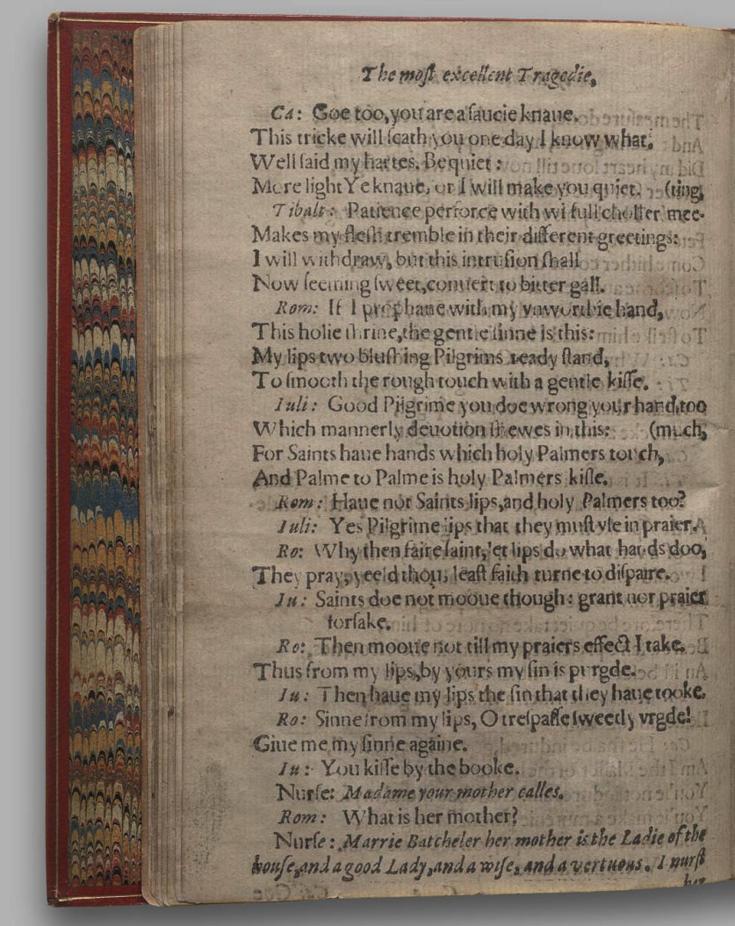 The moſt excellent Tragedie,
Ca: Goe too, you are a ſaucie knaue.
This tricke will ſcath you one day I know what.
Well ſaid my hartes. Be quiet:
More light Ye knaue, or I will make you quiet. (ting,
Tibalt: Patience perforce with wilfull choller mee-
Makes my fleſh tremble in their different greetings:
I will withdraw, but this intruſion ſhall
Now ſeeming ſweet, conuert to bitter gall.
Rom: If I prophane with my vnworthie hand,
This holie ſhrine, the gentle ſinne is this:
My lips two bluſhing Pilgrims ready ſtand,
To ſmooth the rough touch with a gentle kiſſe.
Iuli: Good Pilgrime you doe wrong your hand too
Which mannerly deuotion ſhewes in this: (much,
For Saints haue hands which holy Palmers touch,
And Palme to Palme is holy Palmers kiſſe.
Rom: Haue not Saints lips, and holy Palmers too?
Iuli: Yes Pilgrime lips that they muſt vſe in praier.
Ro: Why then faire ſaint, let lips do what hands doo,
They pray, yeeld thou, leaſt faith turne to diſpaire.
Iu: Saints doe not mooue though: grant nor praier
forſake.
Ro: Then mooue not till my praiers effect I take.
Thus from my lips, by yours my ſin is purgde.
Iu: Then haue my lips the ſin that they haue tooke.
Ro: Sinne from my lips, O treſpaſſe ſweetly vrgde!
Giue me my ſinne againe.
Iu: You kiſſe by the booke.
Nurſe: Madame your mother calles.
Rom: What is her mother?
Nurſe: Marrie Batcheler her mother is the Ladie of the
houſe, and a good Lady, and a wiſe, and a vertuous. I nurſt
her